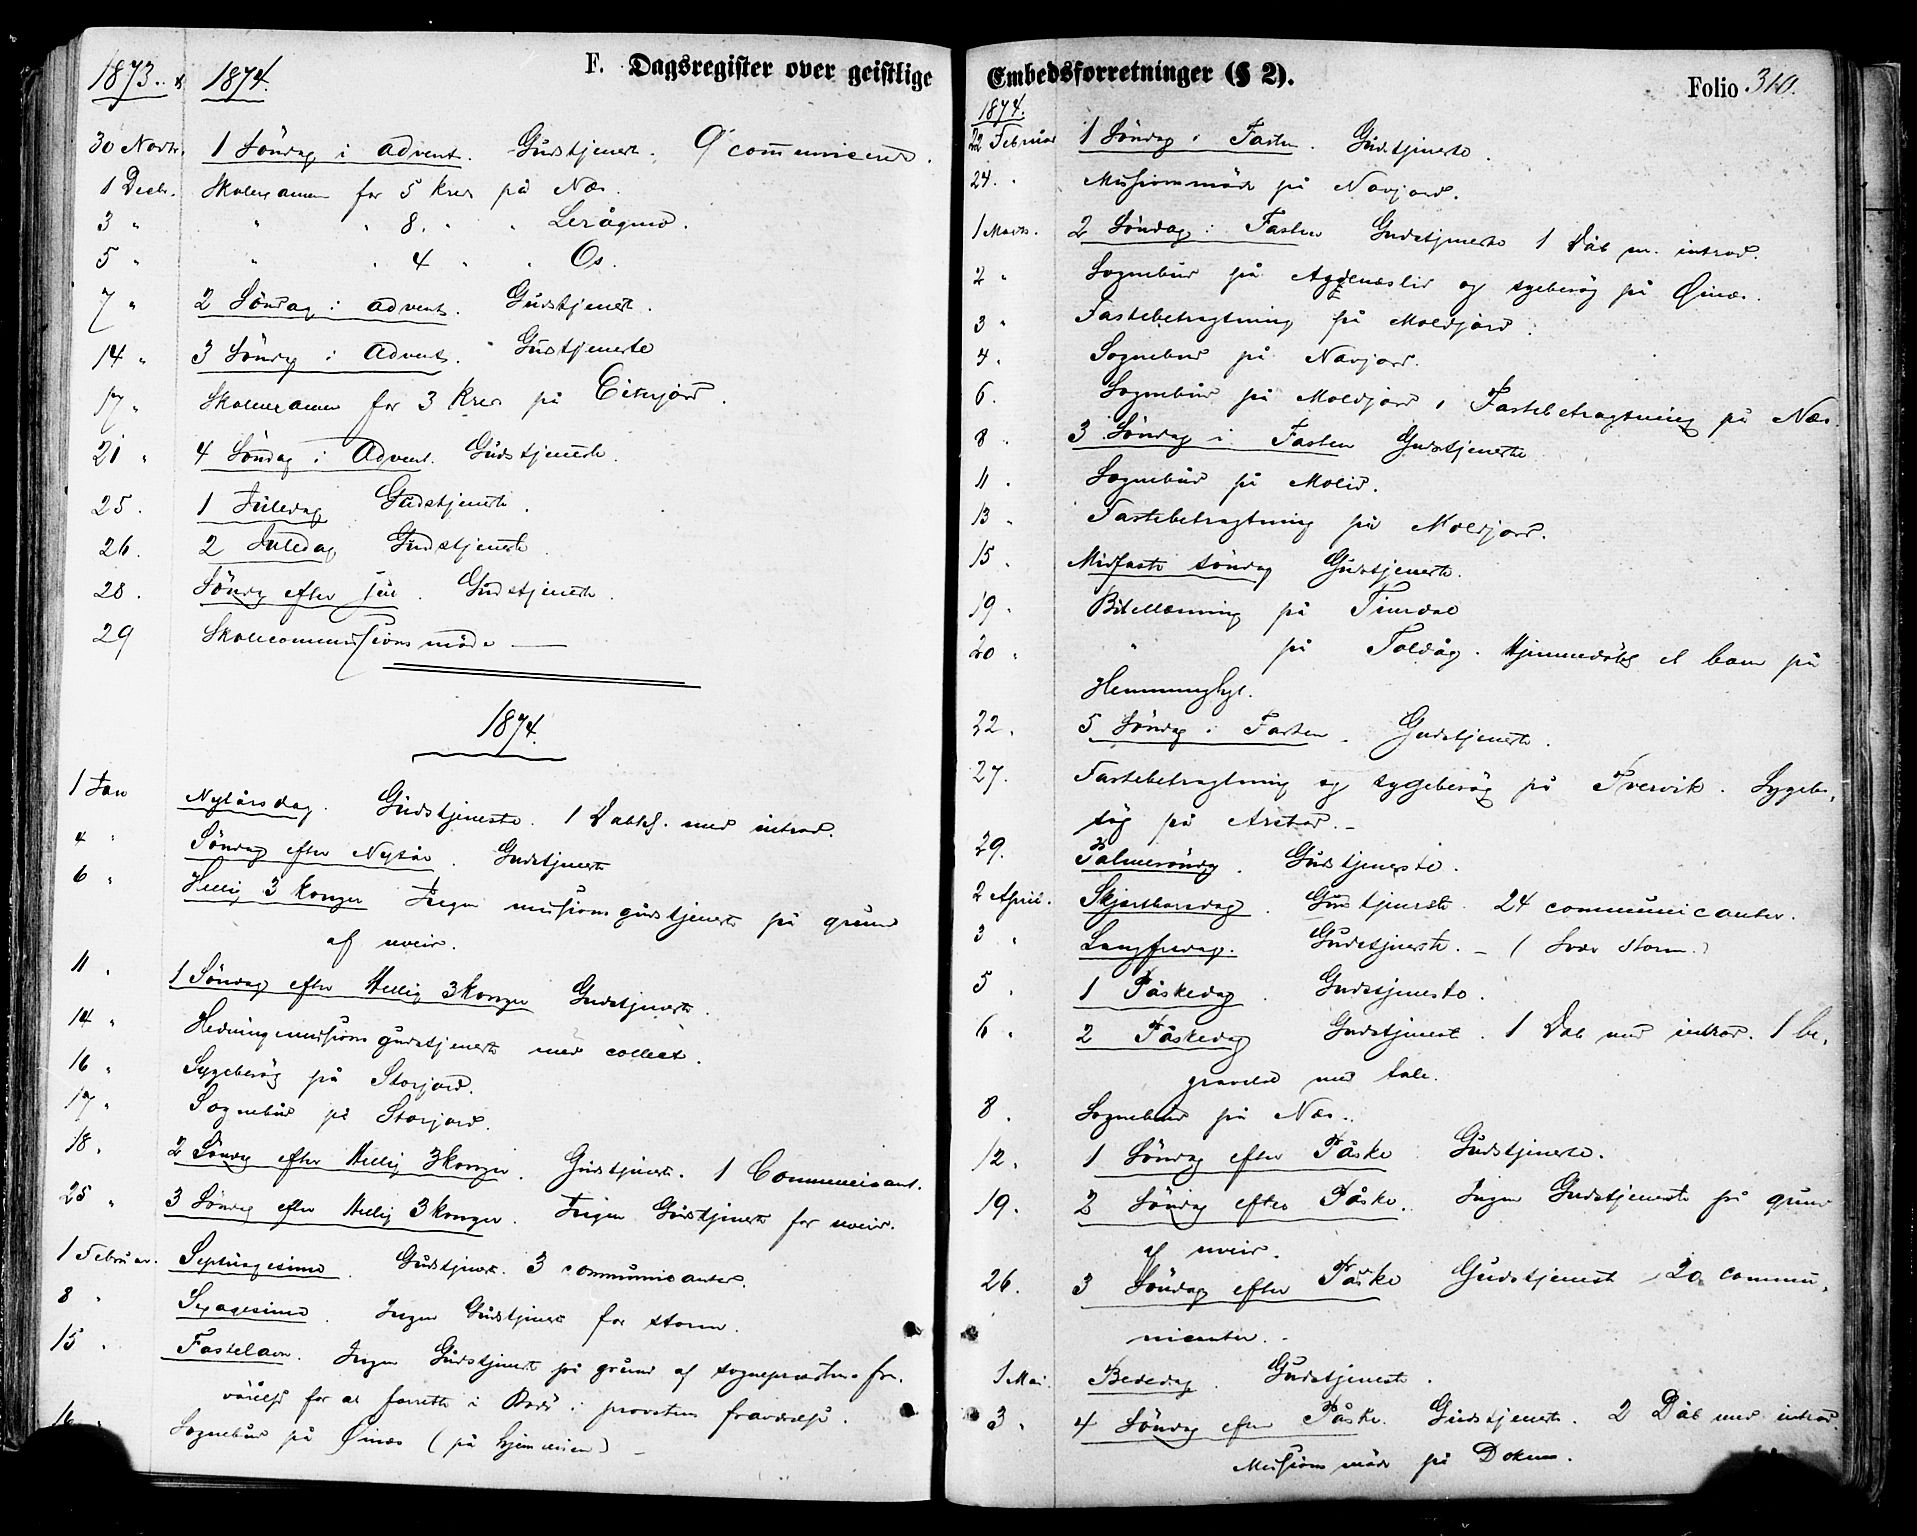 1873. & 1874.
F. Dagsregister over geistlige
30 Novbr. 1 Söndag i Advent. Gudstjeneste.
1 Decbr. Skolexamen for 5 Kred på Næs.
3 " " " 8. " " Lerågmo.
5 " " " 4 " " Os.
7 " 2 Söndag i Advent. Gudstjenest.
14 " 3 Söndag i Advent. Gudstjeneste
17 " Skolexamen for 3 Kred på Eiterjord.
21 " 4 Söndag i Advent. Gudstjeneste.
25. 1 Juledag Gudstjeneste.
26. 2 Juledag Gudstjeneste
28. Söndag efter Jul. Gudstjeneste.
29 Skolecommissionsmöde
1874.
1 Jan Nytårsdag. Gudstjeneste. 1 Dabsf. med introd.
4 " Söndag efter Nytår. Gudstjeneste
6 " Hellig 3 Konger Ingen missionsgudstjeneste på grund
af uveir.
11 " 1 Söndag efter Hellig 3 Konger Gudstjeneste.
14 " Hedningemissionsgudstjeneste med collect.
16 " Sygebesög på Storjord.
17 " Sognebud på Storjord.
18. 2 Söndag efter Hellig 3 Konger. Gudstjeneste. 1 Communicant.
25 " 3 Söndag efter Hellig 3 Konger. Ingen Gudstjeneste for uveir.
1 Februar. Septuagesima. Gudstjenest. 3 communicanter.
8 " Sexagesima. Ingen Gudstjenest for storm.
15 " Fastelavn. Ingen Gudstjenest på grund af sognepræstens fra-
værelse for at forrette i Bodö i provstens fraværelse.
16 " Sognebud på Öinæs (på hjemreisen)
Embedsforretninger (§ 2).
Folio 310.
1874.
22 Februar 1 Söndag i Fasten. Gudstjeneste.
24. " Missionsmöde på Navjord.
1 Marts. 2 Söndag i Fasten Gudstjeneste 1 Dåb m. introd.
2 " Sognebud på Aggenæslid og sygebesög på Öinæs.
3 " Fastebetragtning på Moldjord.
4. Sognebud på Navjord.
6. Sognebud på Moldjord, Fastebetragtning på Næs.
8. 3 Söndag i Fasten Gudstjeneste
11. Sognebud på Molid.
13 " Fastebetragtning på Moldjord.
15 " Midfaste söndag Gudstjeneste.
19. Bibellæsning på Tverdal
20 " " på Toldåg. Hjemmedöbt et barn på
22. 5 Söndag i Fasten. Gudstjeneste.
27. Fastebetragtning og sygebesög på Tvervik. Sygebe-
sög på Arstad.
29. Palmesöndag. Gudstjeneste.
2 April. Skjærthorsdag. Gudstjeneste. 24 communicanter.
3 " Langfredag. Gudstjeneste. (Svær storm.)
5 " 1 Påskedag. Gudstjeneste.
6 " 2 Påskedag Gudstjenest. 1 Dåb med introd. 1 be-
gravelse med tale.
8. Sognebud på Næs.
12. 1 Söndag efter Påske Gudstjeneste.
19. 2 Söndag efter Påske. Ingen Gudstjeneste på grund
af uveir.
26. 3 Söndag efter Påske Gudstjenest 20 commu-
nicanter.
1 Mai. Bededag. Gudstjeneste.
3 " 4 Söndag efter Påske. Gudstjeneste. 2 Dåb med introd.
Missionsmöde på Dokmo.